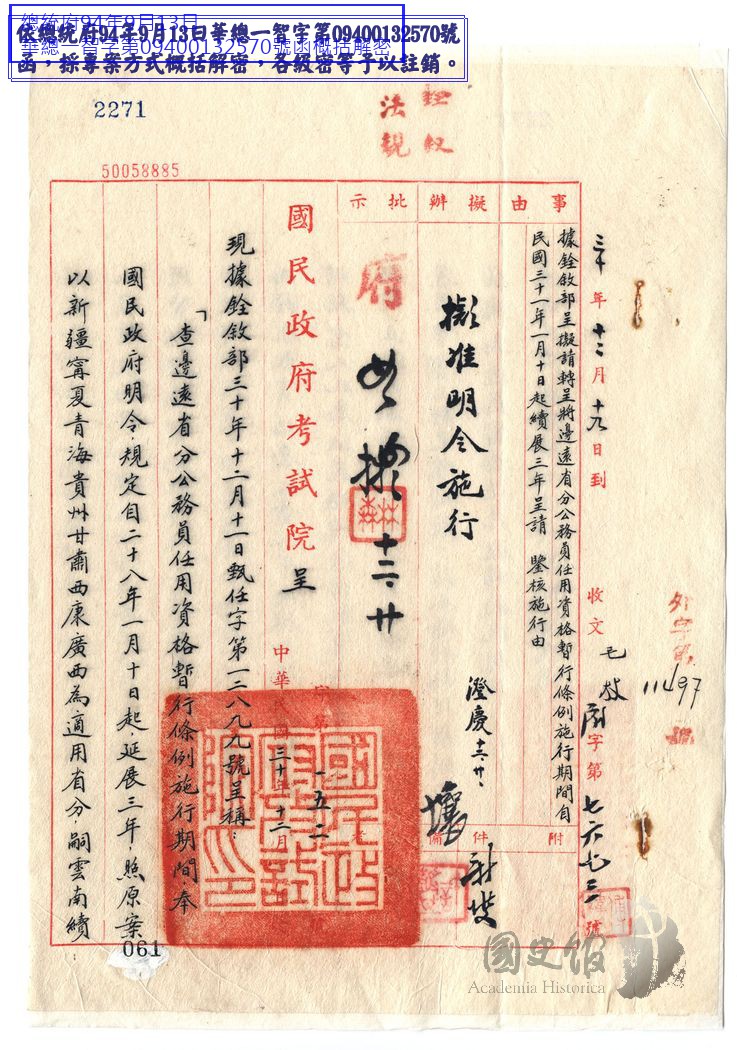 總統府94年9月13日
華總一智字第09400132570號函概括解密
依總統府94年9月13日華總一智字第09400132570號
函，採專案方式概括解密，各級密等予以註銷。
2271
50058885
銓敘
法規
三十年十二月十九日到
收文
字第七六七三號
事由
據銓敘部呈擬請轉呈將邊遠省分公務員任用資格暫行條例施行期間自
民國三十一年一月十日起續展三年呈請 鑒核施行由
附件
擬辦
擬准明令施行
澄慶十二、廿、
批示
府
如擬
十二、廿
國民政府考試院呈
中華民國三十年十二月
現據銓敘部三十年十二月十一日甄任字第一二八九九號呈稱：
「查邊遠省分公務員任用資格暫行條例施行期間，奉
國民政府明令，規定自二十八年一月十日起，延展三年，照原案
以新疆寧夏青海貴州甘肅西康廣西為適用省分，嗣雲南續
061
國史館
Academia Historica